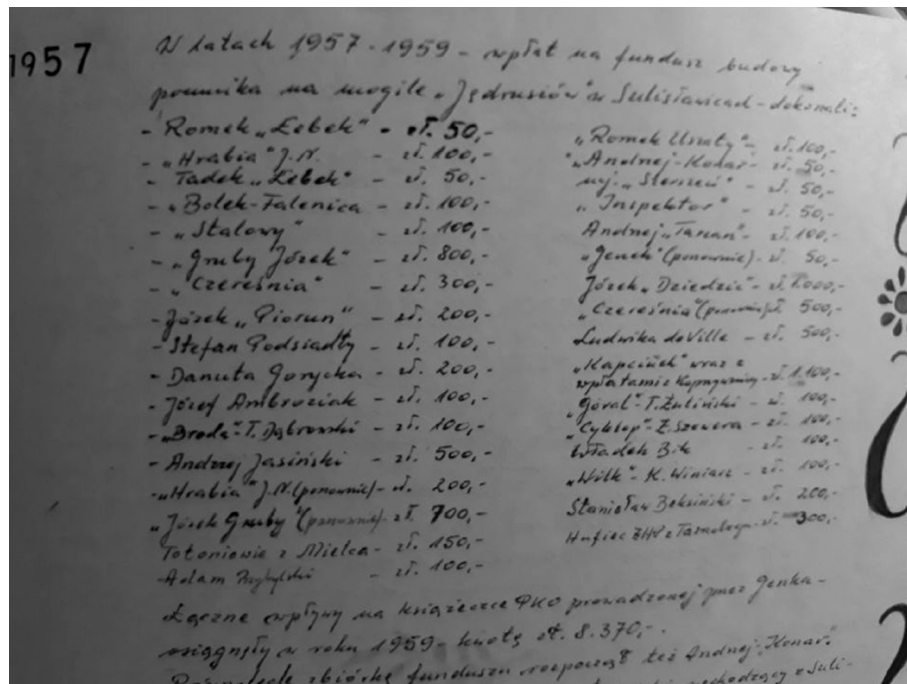 1957
W latach 1957-1959 - wpłat na fundusz budowy
pomnika na mogile „Jędrusiów" w Sulisławicach - dokonali:
- Romek „Łebek" - zł. 50,-
- „Hrabia" J.N. - zł. 100,-
- Tadek „Łebek" - zł. 50,-
- „Bolek-Falenica - zł. 100,-
- „Stalowy" - zł. 100,-
- „Gruby Józek" - zł. 800,-
- „Czereśnia" - zł. 300,-
- Józek „Piorun" - zł. 200,-
- Stefan Podsiadły - zł. 100,-
- Danuta Gorycka - zł. 200,-
- Józef Ambroziak - zł. 100,-
- „Broda"-T. Dąbrowski - zł. 100,-
- Andrzej Jasiński - zł. 500,-
- „Hrabia" J.N. (ponownie) - zł. 200,-
„Józek Gruby" (ponownie) - zł. 700,-
Totoniowie z Mielca - zł. 150,-
- Adam - zł. 100,-
„Romek Uszaty" - zł. 100,-
„Andrzej-Konar" - zł. 50,-
mjr. „Sierszeń" - zł. 50,-
„Inspektor" - zł. 50,-
Andrzej „Tarzan" - zł. 100,-
„Jenek" (ponownie) - zł. 50,-
Józek „Dziedzic" - zł. 1.000,-
„Czereśnia" (ponownie) zł. 500,-
Ludwika de Ville - zł. 500,-
„Kapciuch" wraz z
wpłatami z - zł. 1.100,-
„Góral"-T. Łutiński - zł. 100,-
„Cyklop"-Z. Szewera - zł. 100,-
Władek Bik - zł. 100,-
„Wilk" - K. Winiarz - zł. 100,-
Stanisław Beksiński - zł. 200,-
Hufiec ZHP z Tarnobrzega - zł. 300,-
Łączne wpływy na książeczce PKO prowadzonej przez Jenka -
osiągnęły w roku 1959 - kwotę zł. 8.370,-.
zbiórkę funduszu rozpoczął też Andrzej „Konar".